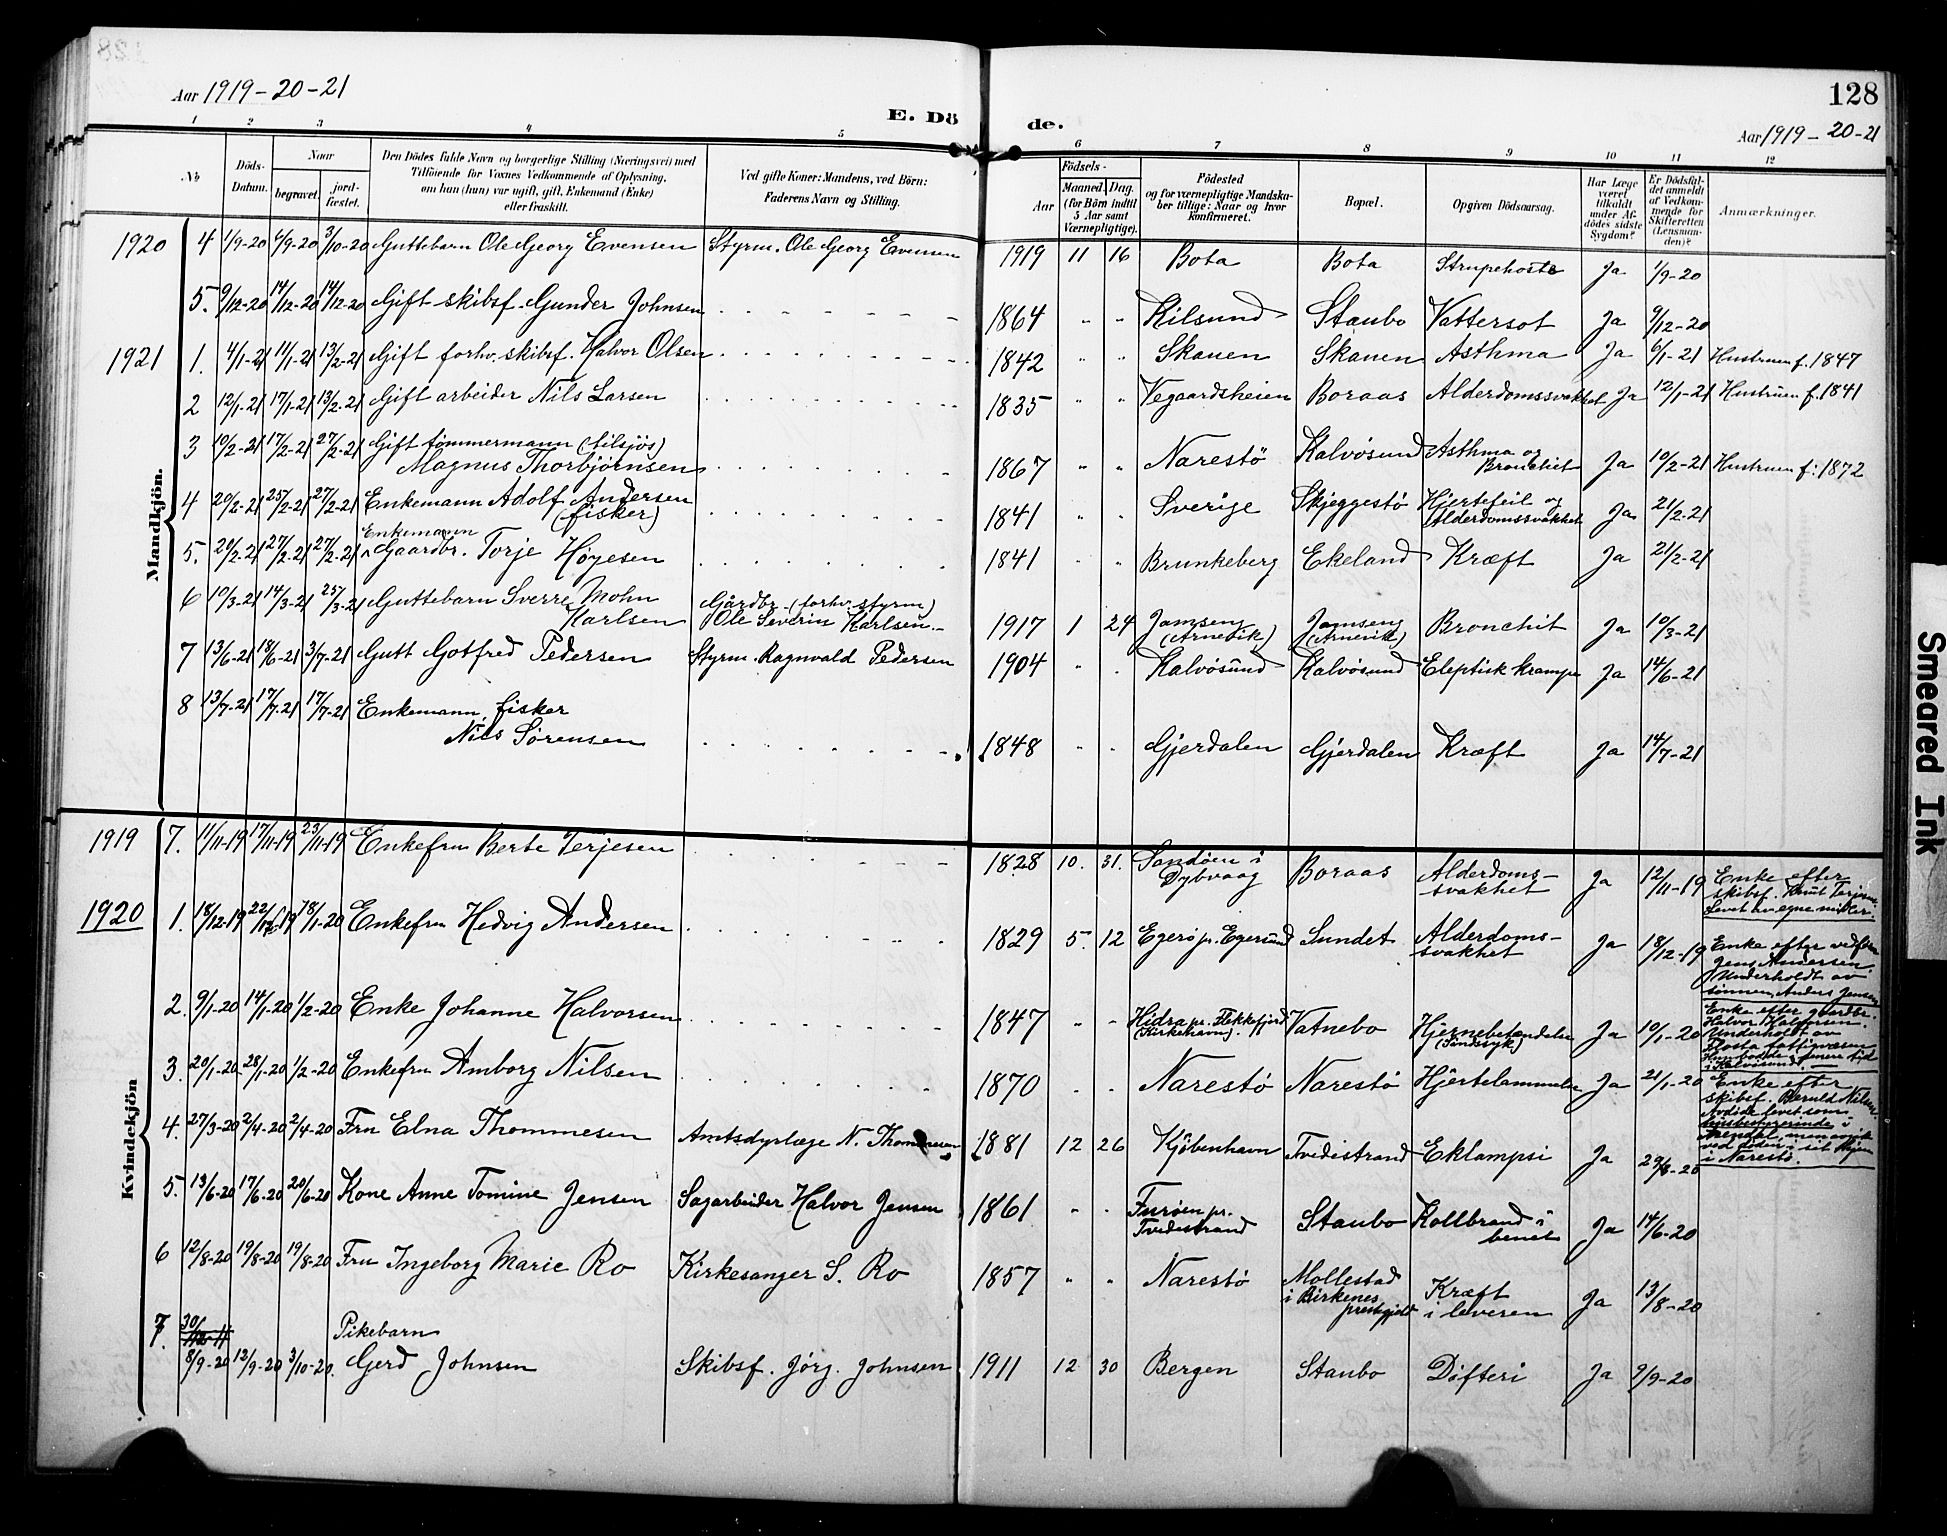 Aar 1919-20-21
E. Dö
de.
128
Aar 1919-20-21
1 2 3 4 5 6 7 8 9 10 11 12
№
Döds-Datum.
Naar
begravet.
jord-fæstet.
Den Dödes fulde Navn og borgerlige Stilling (Næringsvei) med
Tilføiende for Voxnes Vedkommende af Oplysning,
om han (hun) var ugift, gift, Enkemand (Enke)
eller fraskilt.
Ved gifte Koner: Mandens, ved Börn:
Faderens Navn og Stilling.
Födsels-
Aar
Maaned. Dag.
(for Børn indtil
5 Aar samt
Værnepligtige).
Födested
og for værnepligtige Mandska-
ber tillige: Naar og hvor
konfirmeret.
Bopæl.
Opgiven Dödsaarsag.
Har Læge
været
tilkaldt
under Af-
dødes sidste
Sygdom?
Er Dødsfal-
det anmeldt
af Vedkom-
mende for
Skifteretten
(Lensman-
den)?
Anmærkninger.
Mandkjön.
1920 4 1/9-20 6/9-20 3/10-20 Guttebarn Ole Georg Evensen Styrm. Ole Georg Evensen 1919 11 16 Bota Bota Strupehoste Ja 1/9-20
5. 9/12-20 14/12-20 14/12-20 Gift skibsf. Gunder Johnsen 1864 " " Kilsund Staubo Vattersot Ja 9/12-20
1921 1. 4/1-21 11/1-21 13/2-21 Gift forhv. skibsf. Halvor Olsen 1842 " " Skauen Skauen Asthma Ja 6/1-21 Hustruen f. 1847
2 12/1-21 17/1-21 13/2-21 Gift arbeider Nils Larsen 1835 " " Vegaardsheien Boraas Alderdomssvakhet Ja 12/1-21 Hustruen f. 1841
3 10/2-21 17/2-21 27/2-21 Gift tømmermann (tilsjøs)
Magnus Thorbjørnsen 1867 " " Narestö Kalvösund Asthma og
Bronchit Ja 10/2-21 Hustruen f: 1872
4 20/2-21 25/2-21 27/2-21 Enkemann Adolf Andersen
(fisker) 1841 " " Sverige Skjeggestö Hjertefeil og
Alderdomssvakhet Ja 21/2-21
Enkemann
5. 20/2-21 27/2-21 27/2-21 Gaardbr. Torje Høgesen 1841 " " Brunkeberg Ekeland Kræft Ja 21/2-21
6 10/3-21 14/3-21 25/3-21 Guttebarn Sverre Mohn
Karlsen Gårdbr. (forhv. styrm)
Ole Severin Karlsen 1917 1 24 Jomseng
(Arnevik) Jomseng
(Arnevik) Bronchit Ja 10/3-21
7 13/6-21 18/6-21 3/7-21 Gutt Gotfred Pedersen Styrm. Ragnvald Pedersen 1904 " " Kalvösund Kalvösund Eleptisk krampe Ja 14/6-21
8 13/7-21 17/7-21 17/7-21 Enkemann, fisker
Nils Sørensen 1848 " " Gjerdalen Gjerdalen Kræft Ja 14/7-21
Kvindekjön
1919 7. 11/11-19 17/11-19 23/11-19 Enkefru Berte Terjesen 1828 10. 31. Sandøen i
Dybvaag Boraas Alderdoms-
svakhet Ja 12/11-19 Enke efter
skibsf. Knut Terjesen
Levet av egne midler.
1920 1. 18/12-19 22/12-19 18/1-20 Enkefru Hedvig Andersen 1829 5. 12 Egerö pr. Egersund Sundet Alderdoms-
svakhet Ja 18/12-19 Enke efter
Jens Andersen.
Underholdt av
sønnen, Anders Jensen
2. 9/1-20 14/1-20 1/2-20 Enke Johanne Halvorsen 1847 " " Hidra pr. Flekkefjord
(Kirkehavn). Vatnebo Hjernebetændelse
(Sindssyk) Ja 10/1-20 Enke efter gaardbr.
Halvor Halvorsen.
Underholdt av
Flosta fattigvæsen
Hun bodde i senere tid
i Kalvösund.
3. 20/1-20 28/1-20 1/2-20 Enkefru Amborg Nilsen 1870 " " Narestö Narestö Hjertelammelse Ja 21/1-20 Enke efter
skibsf. Beruld Nilsen
Avdöde levet som
husbestyrerinde i
Arendal, men avgik
ved döden i sit Hjem
i Narestö.
4. 27/3-20 2/4-20 2/4-20 Fru Elna Thommesen Amtsdyrlæge N. Thommesen 1881 12 26 Kjöbenhavn Tvedestrand Eklampsi Ja
5. 13/6-20 17/6-20 20/6-20 Kone Anne Tomine Jensen Sagarbeider Halvor Jensen 1861 " " Furøen pr.
Tvedestrand Staubo Kollbrand i
benet Ja 14/6-20
6 12/8-20 19/8-20 19/8-20 Fru Ingeborg Marie Ro Kirkesanger S. Ro 1857 " " Narestö Mollestad
i Birkenes
prestegjeld Kræft
i leveren Ja 13/8-20
7. 30/
8/9-20 12/9-20 3/10-20. Pikebarn
Gerd Johnsen Skibsf. Jörg. Johnsen 1911 12 30 Bergen Staubo Difteri Ja 9/9-20
Smeared Ink